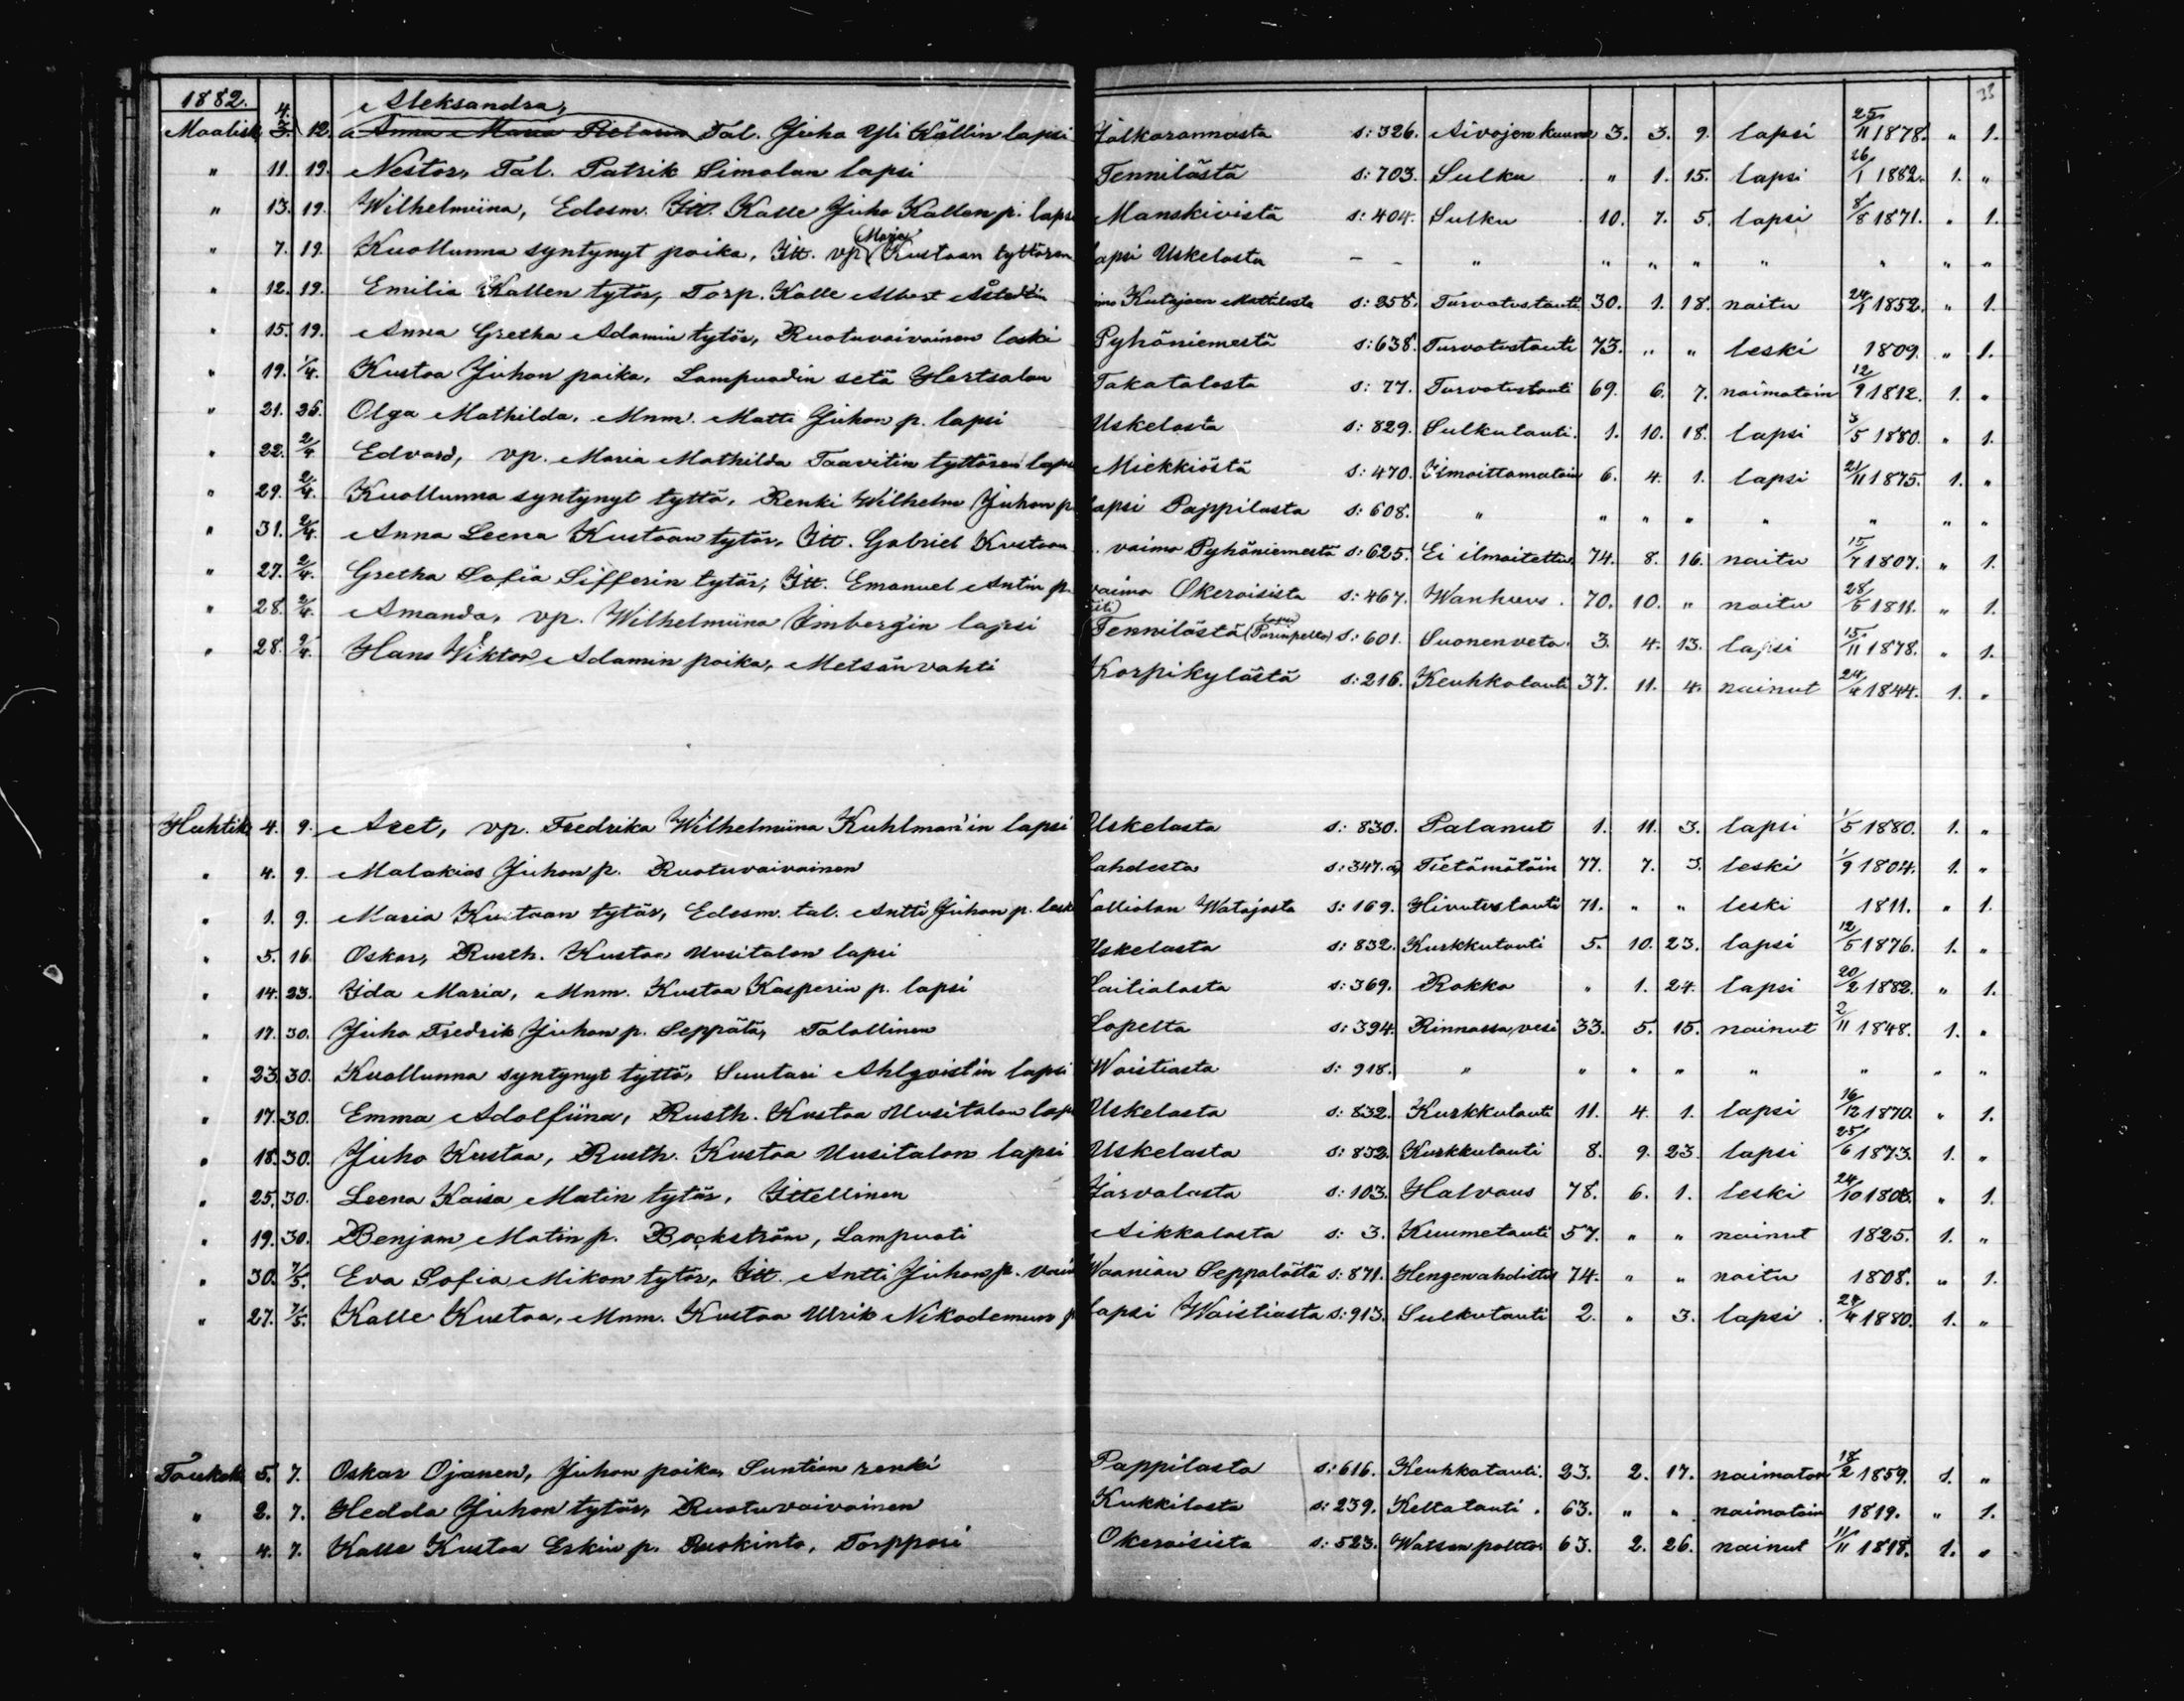 33
1882. Aleksandra,
Maalisk. 4. 3. 12. Anna Maria Pietarin Tal. Juho Yli Källin lapsi Jalkarannasta s: 326. Aivojen kuume 3. 3. 9. lapsi 25/11 1878. " 1.
" 11. 19. Nestor, Tal. Patrik Simolan lapsi Tennilästä s: 703. Sulku " 1. 15. lapsi 26/1 1882. 1. "
" 13. 19. Wilhelmiina, Edesm. Itt. Kalle Juho Kallen p. lapsi Manskivistä s: 404. Sulku 10. 7. 5. lapsi 8/8 1871. " 1.
" 7. 19. Kuollunna syntynyt poika, Itt. vp. (Maja) Kustaan tyttären lapsi Uskelasta - - " " " " " " " "
" 12. 19. Emilia Kallen tytär, Torp. Kalle Albert Åstedtin Kutajoen Mattilasta s: 258. Turvotustauti 30. 1. 18. naitu 24/1 1852. " 1.
" 15. 19. Anna Gretha Adamin tytär, Ruotuvaivainen leski Pyhäniemestä s: 638. Turvotustauti 73. " " leski 1809. " 1.
" 19. 1/4. Kustaa Juhon poika, Lampuodin setä Hertsalan Takatalosta s: 77. Turvotustauti 69. 6. 7. naimatoin 12/9 1812. 1. "
" 21. 26. Olga Mathilda, Mnm. Matti Juhon p. lapsi Uskelasta s: 829. Sulkutauti. 1. 10. 18. lapsi 3/5 1880. " 1.
" 22. 2/4 Edvard, vp. Maria Mathilda Taavitin tyttären lapsi Miekkiöstä s: 470. Ilmoittamatoin 6. 4. 1. lapsi 21/11 1875. 1. "
" 29. 2/4. Kuollunna syntynyt tyttö, Renki Wilhelm Juhon p. lapsi Pappilasta s: 608. " " " " " " " "
" 31. 2/4. Anna Leena Kustaan tytär, Itt. Gabriel Kustaan vaimo Pyhäniemestä s: 625. Ei ilmoitettu. 74. 8. 16. naitu 15/7 1807. " 1.
" 27. 2/4. Gretha Sofia Sifferin tytär, Itt. Emanuel Antin p. vaimo Okeroisista s: 467. Wanhuus. 70. 10. " naitu 28/5 1811. " 1.
" 28. 2/4. Amanda, vp. Wilhelmiina Limberg'in lapsi Tennilästä s: 601. Suonenveto. 3. 4. 13. lapsi 15/11 1878. " 1.
" 28. 9/4. Hans Viktor Adamin poika, Metsänvahti Korpikylästä s: 216. Keuhkotauti 37. 11. 4. nainut 24/4 1844. 1. "
Huhtik. 4. 9. Axet, vp. Fredrika Wilhelmiina Kuhlman'in lapsi Uskelasta s: 830. Palanut 1. 11. 3. lapsi 1/5 1880. 1. "
" 4. 9. Malakias Juhon p. Ruotuvaivainen Lahdesta s: 347. a) Tietämätöin 77. 7. 3. leski 1/9 1804. 1. "
" 1. 9. Maria Kustaan tytär, Edesm. tal. Antti Juhon p. leski Kalliolan Watajasta s: 169. Hivutustauti 71. " " leski 1811. " 1.
" 5. 16. Oskar, Rusth. Kustaa Uusitalon lapsi Uskelasta s: 832. Kurkkutauti 5. 10. 23. lapsi 12/5 1876. 1. "
" 14. 23. Ida Maria, Mnm. Kustaa Kasperin p. lapsi Laitialasta s: 369. Rokko " 1. 24. lapsi 20/2 1882. " 1.
" 17. 30. Juho Fredrik Juhon p. Seppälä, Talollinen Lopelta s: 394. Rinnassa vesi 33. 5. 15. nainut 2/11 1848. 1. "
" 23. 30. Kuollunna syntynyt tyttö, Suutari Ahlqvist'in lapsi Waistiasta s: 918. " " " " " " " "
" 17. 30. Emma Adolfiina, Rusth. Kustaa Uusitalon lapsi Uskelasta s: 832. Kurkkutauti 11. 4. 1. lapsi 16/12 1870. " 1.
" 18. 30. Juho Kustaa, Rusth. Kustaa Uusitalon lapsi Uskelasta s: 832. Kurkkutauti 8. 9. 23. lapsi 25/6 1873. 1. "
" 25. 30. Leena Kaisa Matin tytär, Ittellinen Järvelästä s: 103. Halvaus 78. 6. 1. leski 24/10 1803. " 1.
" 19. 30. Benjam Matin p. Backström, Lampuoti Aikkalasta s: 3. Kuumetauti 57. " " nainut 1825. 1. "
" 30. 7/5. Eva Sofia Mikon tytär, Itt. Antti Juhon p. vaimo Waanian Seppälästä s: 871. Hengenahdistus 74. " " naitu 1808. " 1.
" 27. 7/5. Kalle Kustaa, Mnm. Kustaa Ulrik Nikodemun p. lapsi Waistiasta s: 913. Sulkutauti 2. " 3. lapsi 24/4 1880. 1. "
Toukok. 5. 7. Oskar Ojanen, Juhon poika, Suntion renki Pappilasta s: 616. Keuhkotauti. 23. 2. 17. naimaton 18/2 1859. 1. "
" 2. 7. Hedda Juhon tytär, Ruotuvaivainen Kukkilasta s: 239. Keltatauti. 63. " " naimatoin 1819. " 1.
" 4. 7. Kalle Kustaa Erkin p. Ruokinto, Torppari Okeroisista s: 523. Watsan poltto 63. 2. 26. nainut 11/11 1818. 1. "